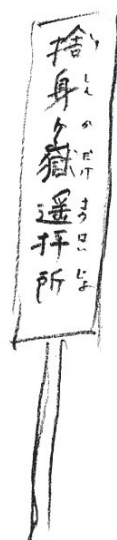 捨身ヶ嶽遥拝所
しゃしんがだけようはいじょ